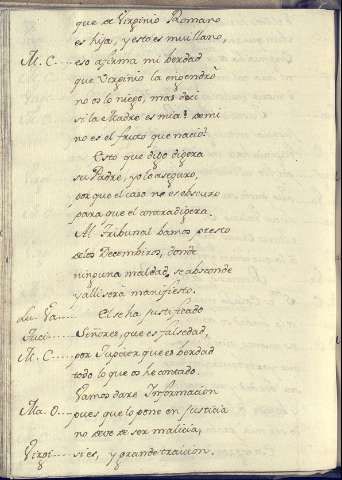 que de Virginio Romano
es hija, y esto es mui llano,
M. C. eso afirma mi berdad
que Virginio la engendrò
no os lo niego, mas deci
si la Madre es mia? de mi
no es el fruto que naciò?
Esto que digo digera
su Padre, yo lo aseguro,
porque el caso no es obscuro
para que el contradigera.
Al Tribunal bamos presto
de los Decembiros, donde
ninguna maldad, se absconde
y alli serà manifiesto.
El se ha justificado
Señores, que es falsedad,
M. C. por Jupiter que es berdad
todo lo que os he contado.
Vamos dare Informacion
Ma. O. pues que lo pone en justicia
no deve de ser malicia,
Virgi si es, y grande traicion.